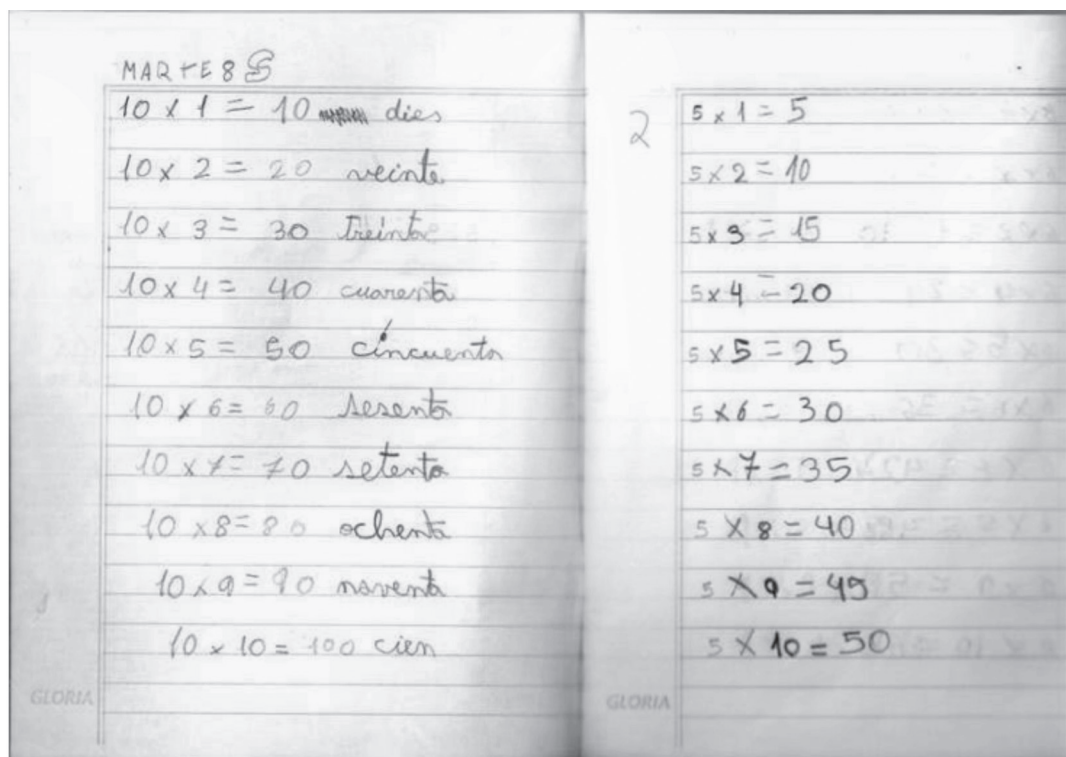 MARTE 8
10 x 1 = 10 dies
10 x 2 = 20 veinte
10 x 3 = 30 treinta
10 x 4 = 40 cuarenta
10 x 5 = 50 cincuenta
10 x 6 = 60 sesenta
10 x 7 = 70 setenta
10 x 8 = 80 ochenta
10 x 9 = 90 noventa
10 x 10 = 100 cien
GLORIA
2
5 x 1 = 5
5 x 2 = 10
5 x 3 = 15
5 x 4 = 20
5 x 5 = 25
5 x 6 = 30
5 x 7 = 35
5 x 8 = 40
5 x 9 = 45
5 x 10 = 50
GLORIA